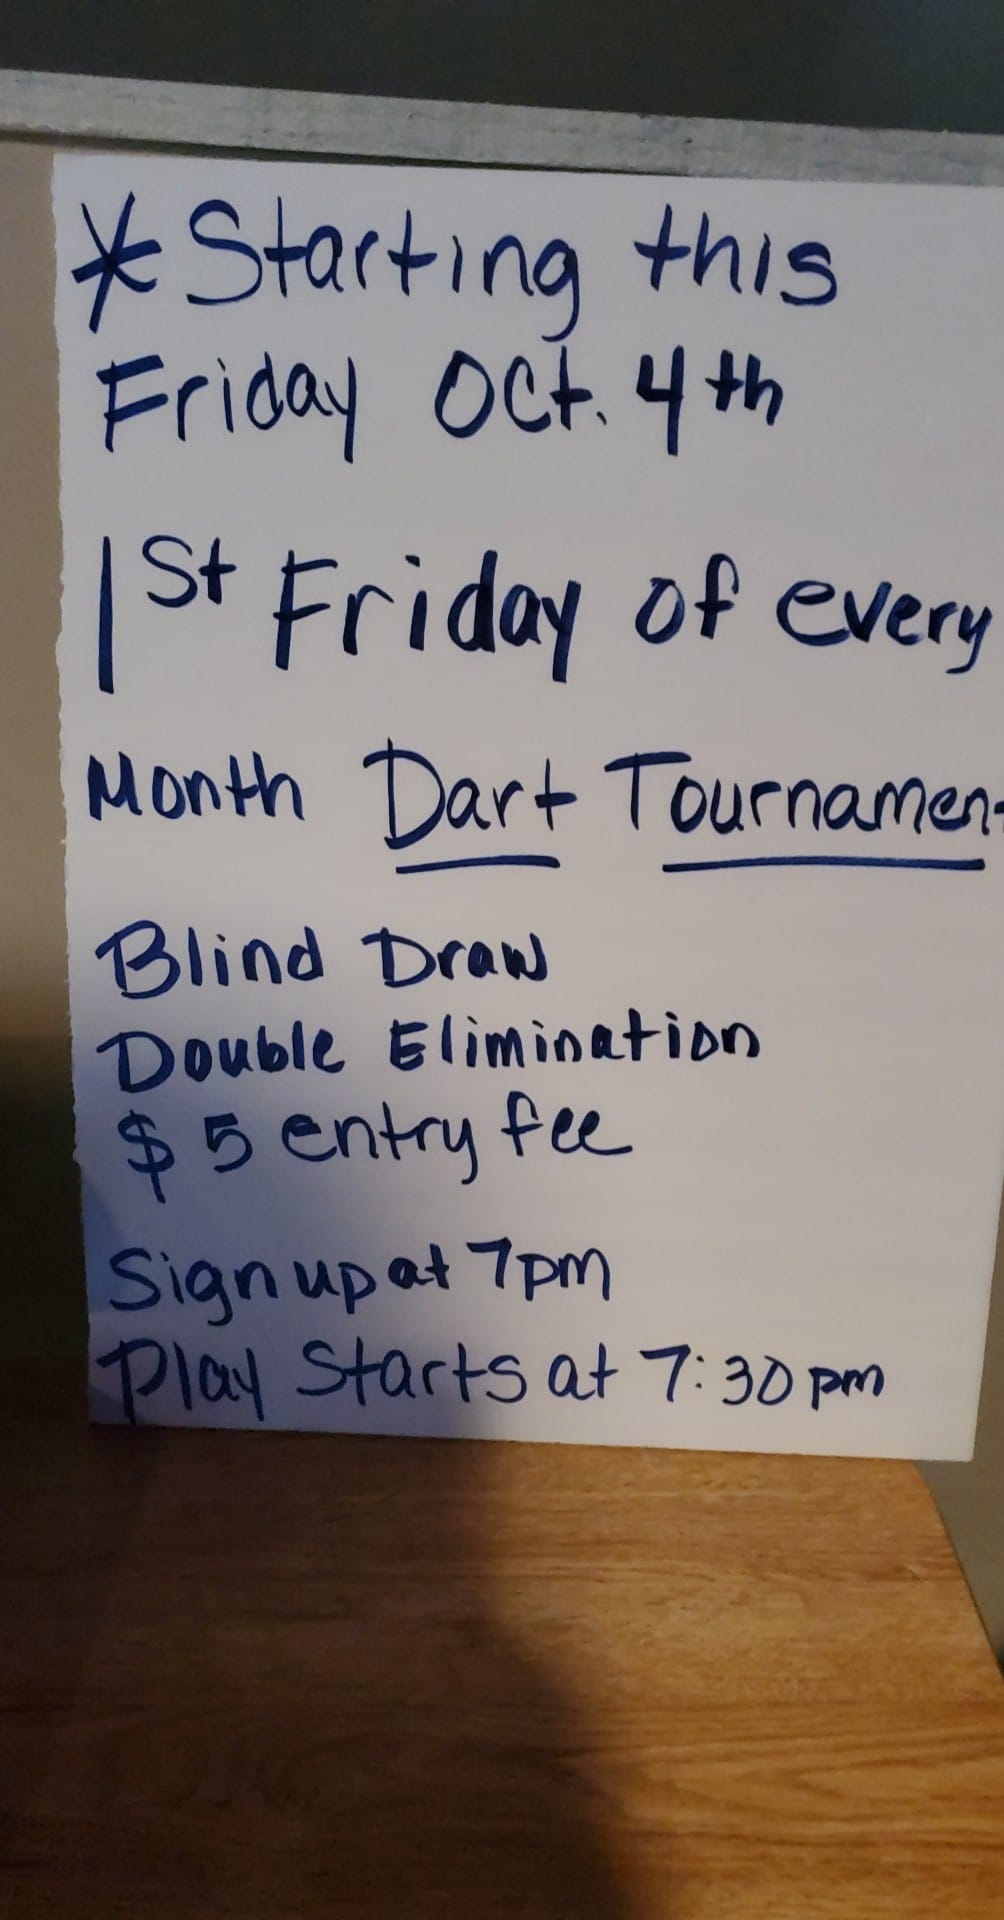 * Starting this
Friday Oct. 4th
1st Friday of every
Month Dart Tournament
Blind Draw
Double Elimination
$5 entry fee
Sign up at 7pm
Play Starts at 7:30pm